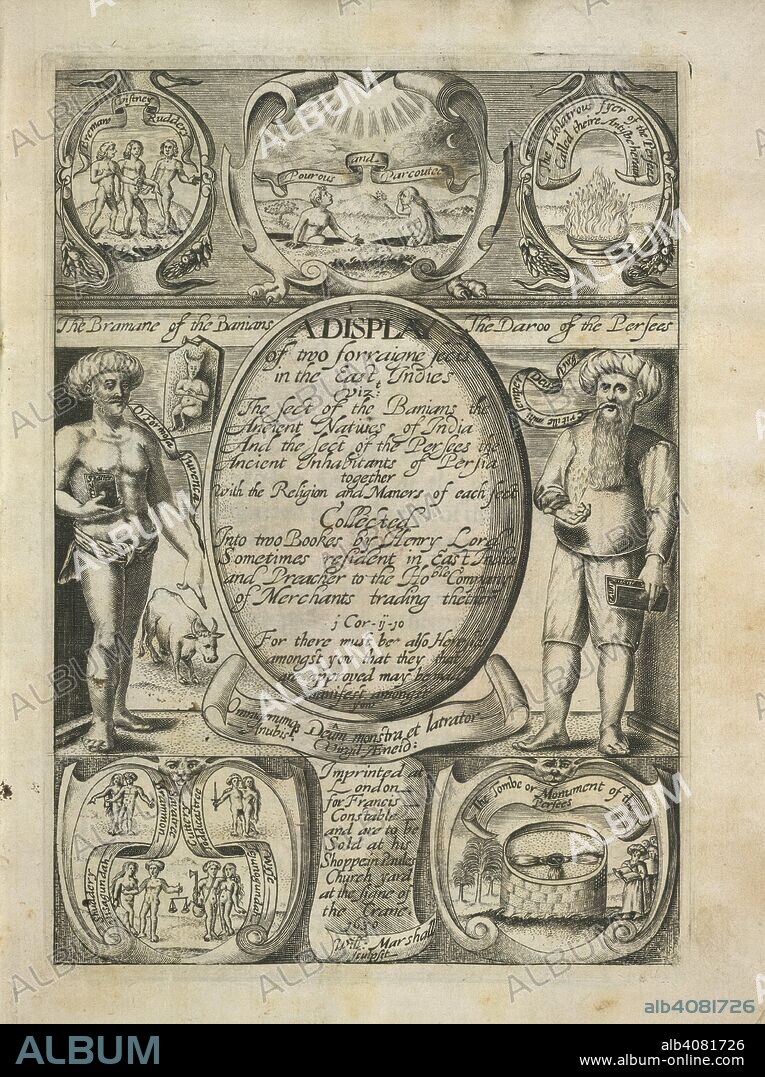 Bremaw Vistney Ruddery
Pourous and Parcoutee
The Idolatrous fyer of the Persees
Called theire Antisbeheraun
The Bramane of the Banians
The Daroo of the Persees
A DISPLAY
of two forraigne sects
in the East Indies
Viz:
The sect of the Banians the
Ancient Natives of India
And the sect of the Persees the
Ancient Inhabitants of Persia
together
with the Religion and Maners of each sect
Collected
Into two Bookes by Henry Lord
Sometimes resident in East India
and Preacher to the Hoble Company
of Merchants trading thether
j Cor-ij-10
For there must be also Heresies
amongst you that they that
are approved may be made
manifest amongst
you
Omnigenumq Deûm monstra, et latrator
Anubis
Virgil Æneid:
Imprinted at
London
for Francis
Constable
and are to be
Sold at his
Shoppe in Paules
Church yard
at the signe of
the Crane.
1630
Will: Marshall
sculpsit
The Tombe or Monument of the
Persees
ALBUM
alb4081726
ALBUM
alb4081726
www.album-online.com